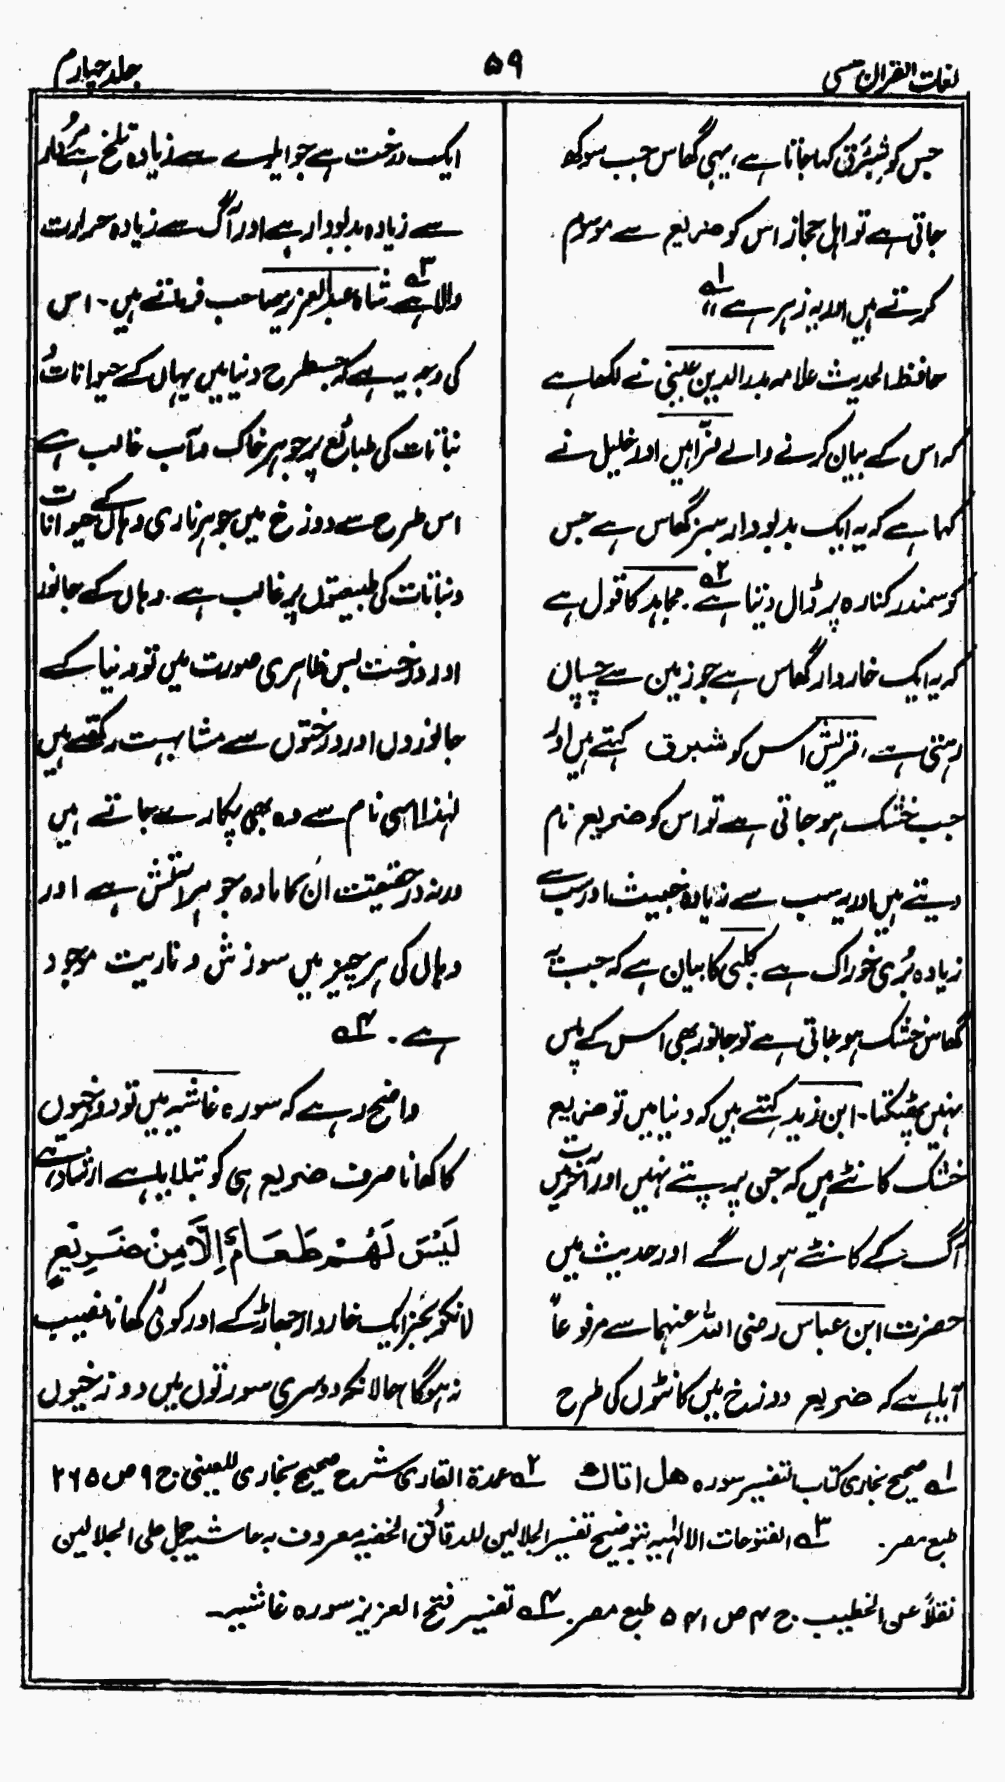 لغات القرآن حسی
۵۹
جلد چہارم
جس کو شِبْرِق کہا جاتا ہے، یہی گھاس جب سوکھ
جاتی ہے تو اہل حجاز اس کو ضریع سے موسوم
کرتے ہیں اور یہ زہر ہے ؎۱
حافظ الحدیث علامہ بدر الدین عینی نے لکھا ہے
کہ اس کے بیان کرنے والے فرّا ہیں اور خلیل نے
کہا ہے کہ یہ ایک بدبودار سبز گھاس ہے جس
کو سمندر کنارہ پر ڈال دیتا ہے ؎۲. مجاہد کا قول ہے
کہ یہ ایک خاردار گھاس ہے جو زمین سے چسپان
رہتی ہے، قریش اس کو شبرق کہتے ہیں اور
جب خشک ہو جاتی ہے تو اس کو ضریع نام
دیتے ہیں اور یہ سب سے زیادہ خبیث اور سب سے
زیادہ بُری خوراک ہے کلبی کا بیان ہے کہ جب یہ
گھاس خشک ہو جاتی ہے تو جانور بھی اس کے پاس
نہیں پھٹکتا۔ ابن زید کہتے ہیں کہ دنیا میں تو ضریع
خشک کانٹے ہیں کہ جن پر پتے نہیں اور آخرت میں
آگ کے کانٹے ہوں گے اور حدیث میں
حضرت ابن عباس رضی اللہ عنہما سے مرفوعاً
آیا ہے کہ ضریع دوزخ میں کانٹوں کی طرح
ایک درخت ہے جو ایلوے سے زیادہ تلخ ہے مُردار
سے زیادہ بدبودار ہے اور آگ سے زیادہ حرارت
والا ہے ؎۳ شاہ عبد العزیز صاحب فرماتے ہیں۔ اس
کی وجہ یہ ہے کہ جسطرح دنیا میں یہاں کے حیوانات و
نباتات کی طبائع پر جوہر خاک و آب غالب ہے
اس طرح سے دوزخ میں جوہر ناری وہاں کے حیوانات
و نباتات کی طبیعتوں پر غالب ہے۔ وہاں کے جانور
اور درخت بس ظاہری صورت میں تو دنیا کے
جانوروں اور درختوں سے مشابہت رکھتے ہیں
لہٰذا اسی نام سے وہ بھی پکارے جاتے ہیں
ورنہ در حقیقت ان کا مادہ جوہر آتش ہے اور
وہاں کی ہر چیز میں سوزش و ناریت موجود
ہے۔ ؎۴
واضح رہے کہ سورہ غاشیہ میں تو دوزخیوں
کا کھانا صرف ضریع ہی کو بتلایا ہے ارشاد ہے
لَیْسَ لَهُمْ طَعَامٌ اِلَّا مِنْ ضَرِیْعٍ
لانکو بجز ایک خاردار جھاڑ کے اور کوئی کھانا نصیب
نہ ہوگا) حالانکہ دوسری سورتوں میں دوزخیوں
؎۱ صحیح بخاری کتاب التفسیر سورہ هل اتاك ؎۲ عمدة القاری شرح صحیح بخاری للعینی ج ۹ ص ۲۶۵
طبع مصر۔ ؎۳ الفتوحات الالٰہیہ بتوضیح تفسیر الجلالین للدقائق الخفیہ معروف بہ حاشیہ جمل علی الجلالین
نقلاً عن الخطیب ج ۴ ص ۵۴۱ طبع مصر۔ ؎۴ تفسیر فتح العزیز سورہ غاشیہ۔